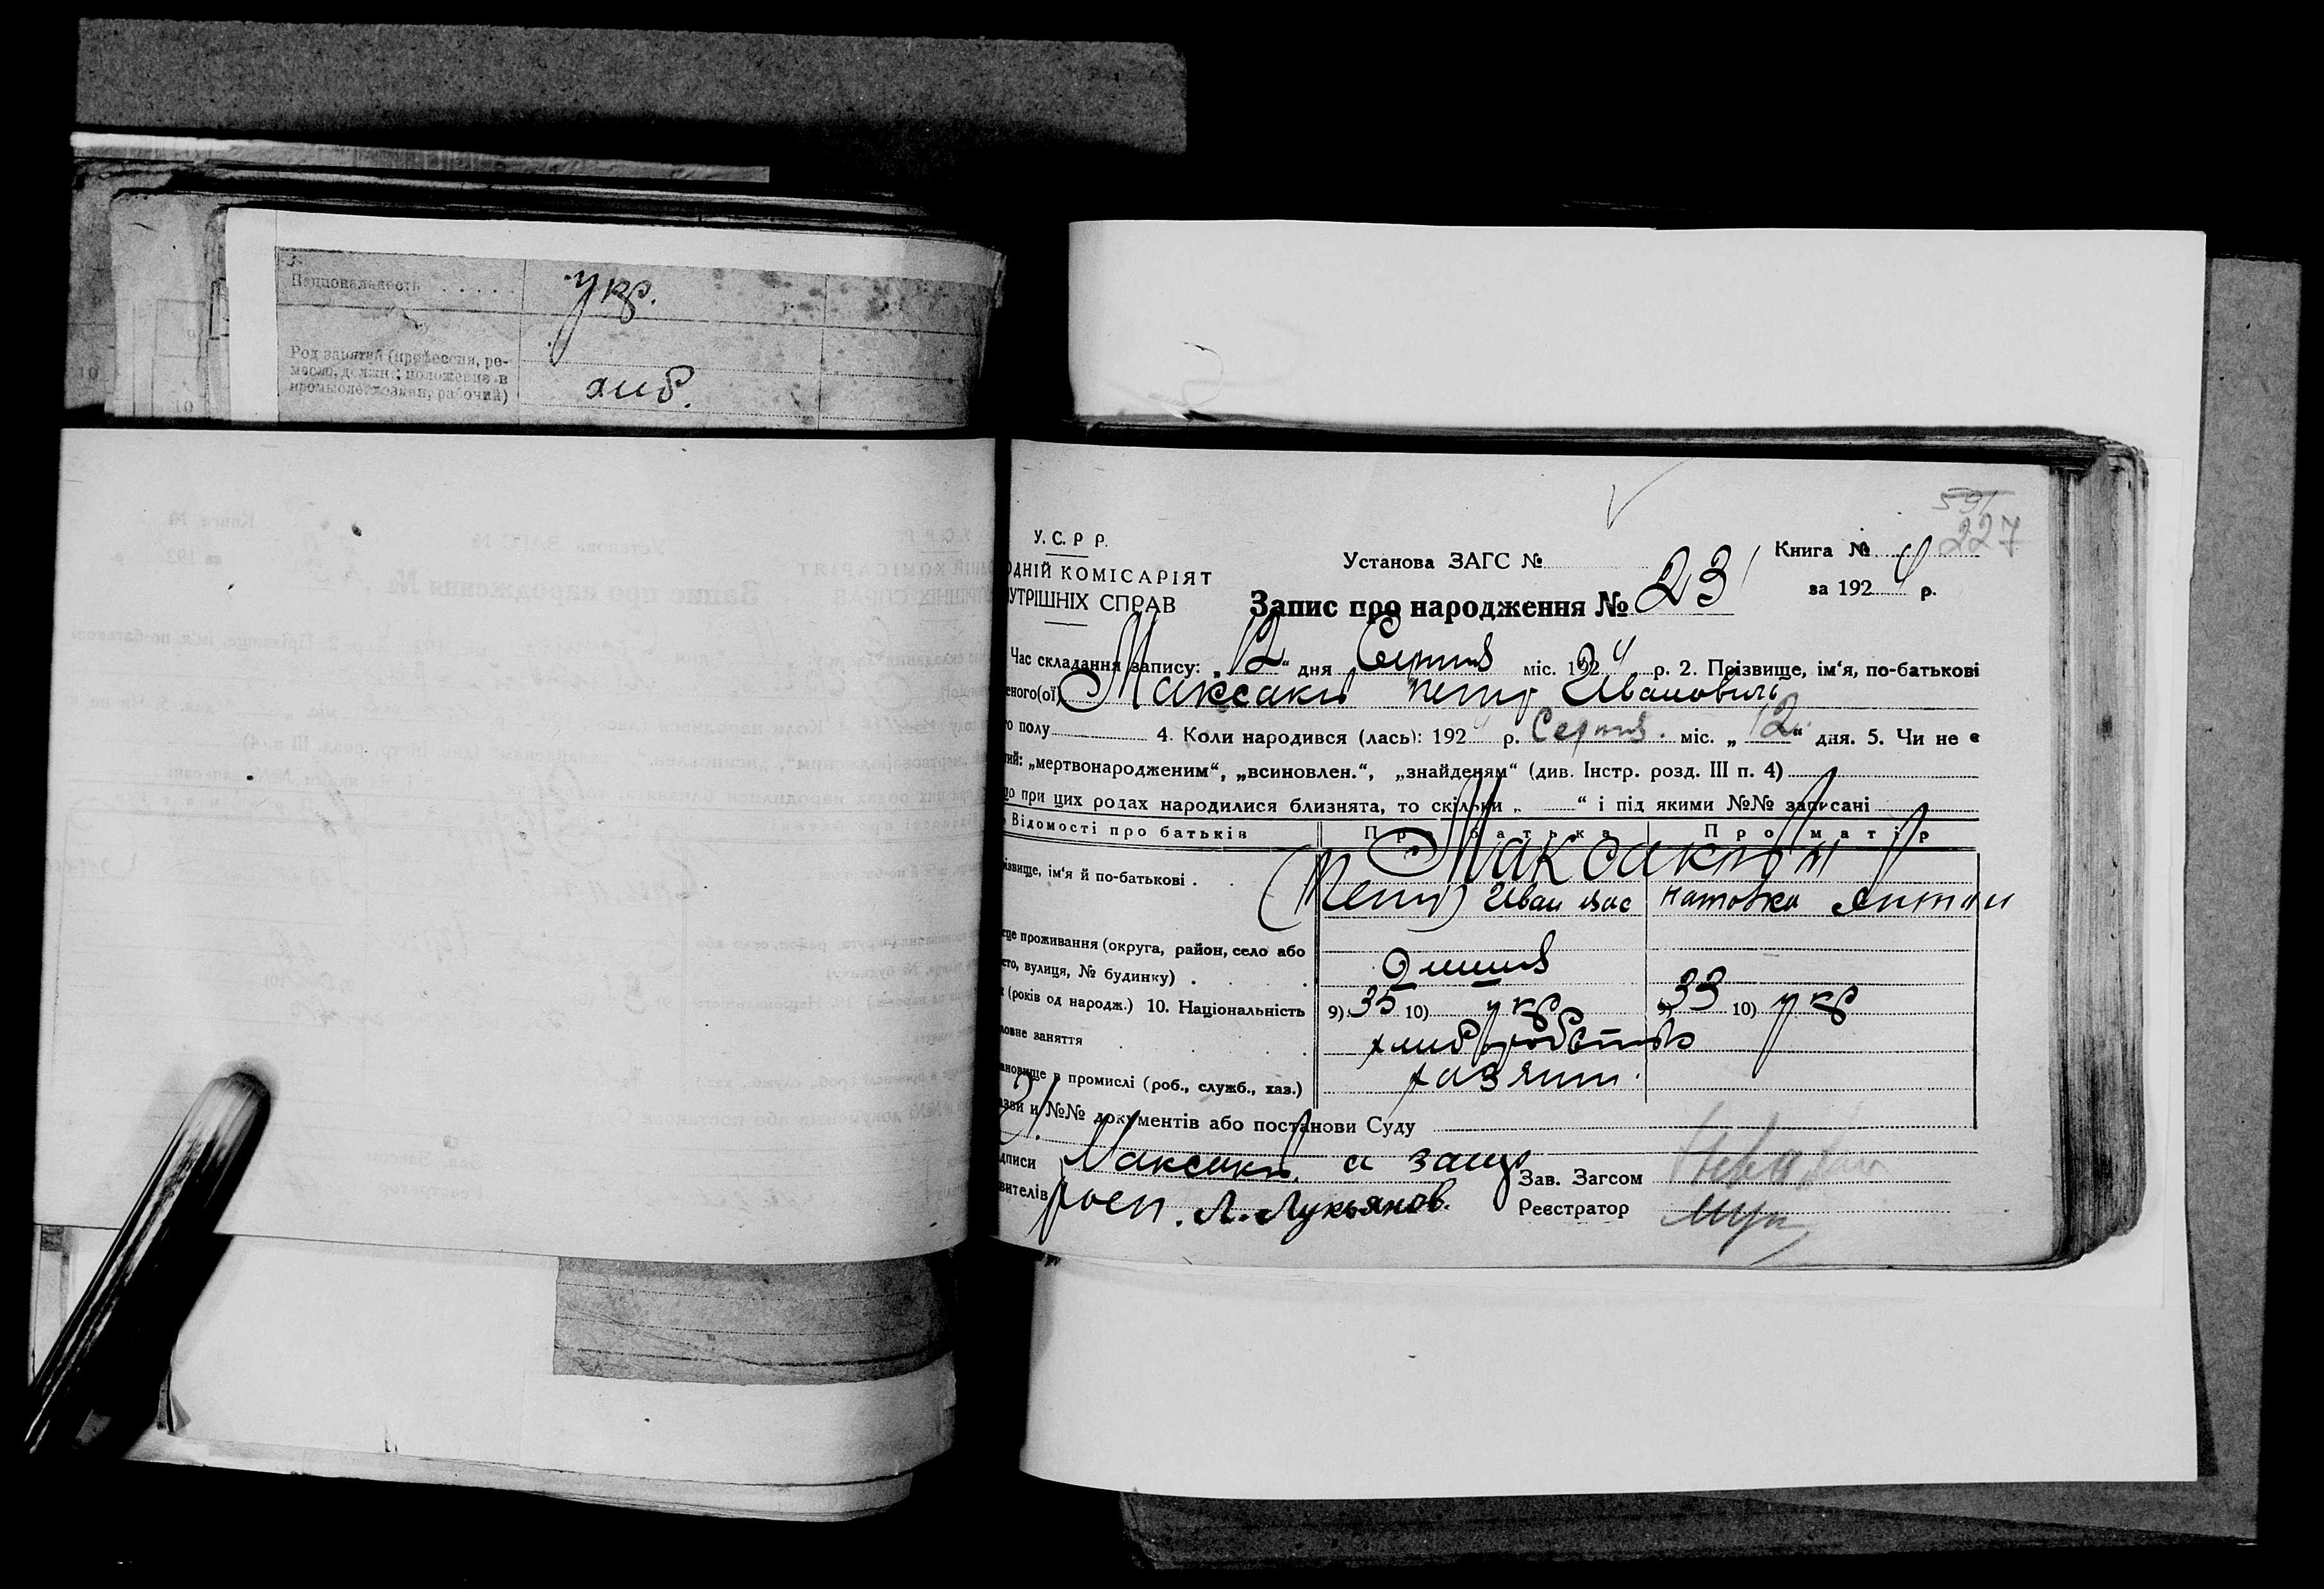 Национальность
укр.
Род занятий (профессия, ре-
месло, должн.; положение в
промысле: хозяин, рабочий)
хліб.
591
227
У.С.Р.Р.
ОДНІЙ КОМІСАРІЯТ
УТРІШНІХ СПРАВ
Установа ЗАГС №
Книга № 4
за 1924 р.
Запис про народження № 23
Час складання запису: „12“ дня Серпня міс. 1924 р. 2. Прізвище, ім'я, по-батькові
еного(ої) Максаків Петро Иванович
о полу 4. Коли народився (лась): 1924 р. Серпня міс. „12“ дня. 5. Чи не є
ий: „мертвонародженим“, „всиновлен.“, „знайденям“ (див. Інстр. розд. III п. 4)
о при цих родах народилися близнята, то скільки „ “ і під якими №№ записані
Відомості про батьків
Про батька
Про матір
ізвище, ім'я й по-батькові
Максаковы
(Петр) Иван Вас
Антон
це проживання (округа, район, село або
сто, вулиця, № будинку)
(років од народж.) 10. Національність
9) 35 10) укр
9) 33 10) укр
овне заняття
хлиборобство
ановище в промислі (роб., служб., хаз.)
хазяин
зви и №№ документів або постанови Суду
дписи
Максаков а за
вителів
росп. Л. Лукьянов.
Зав. Загсом
Реєстратор